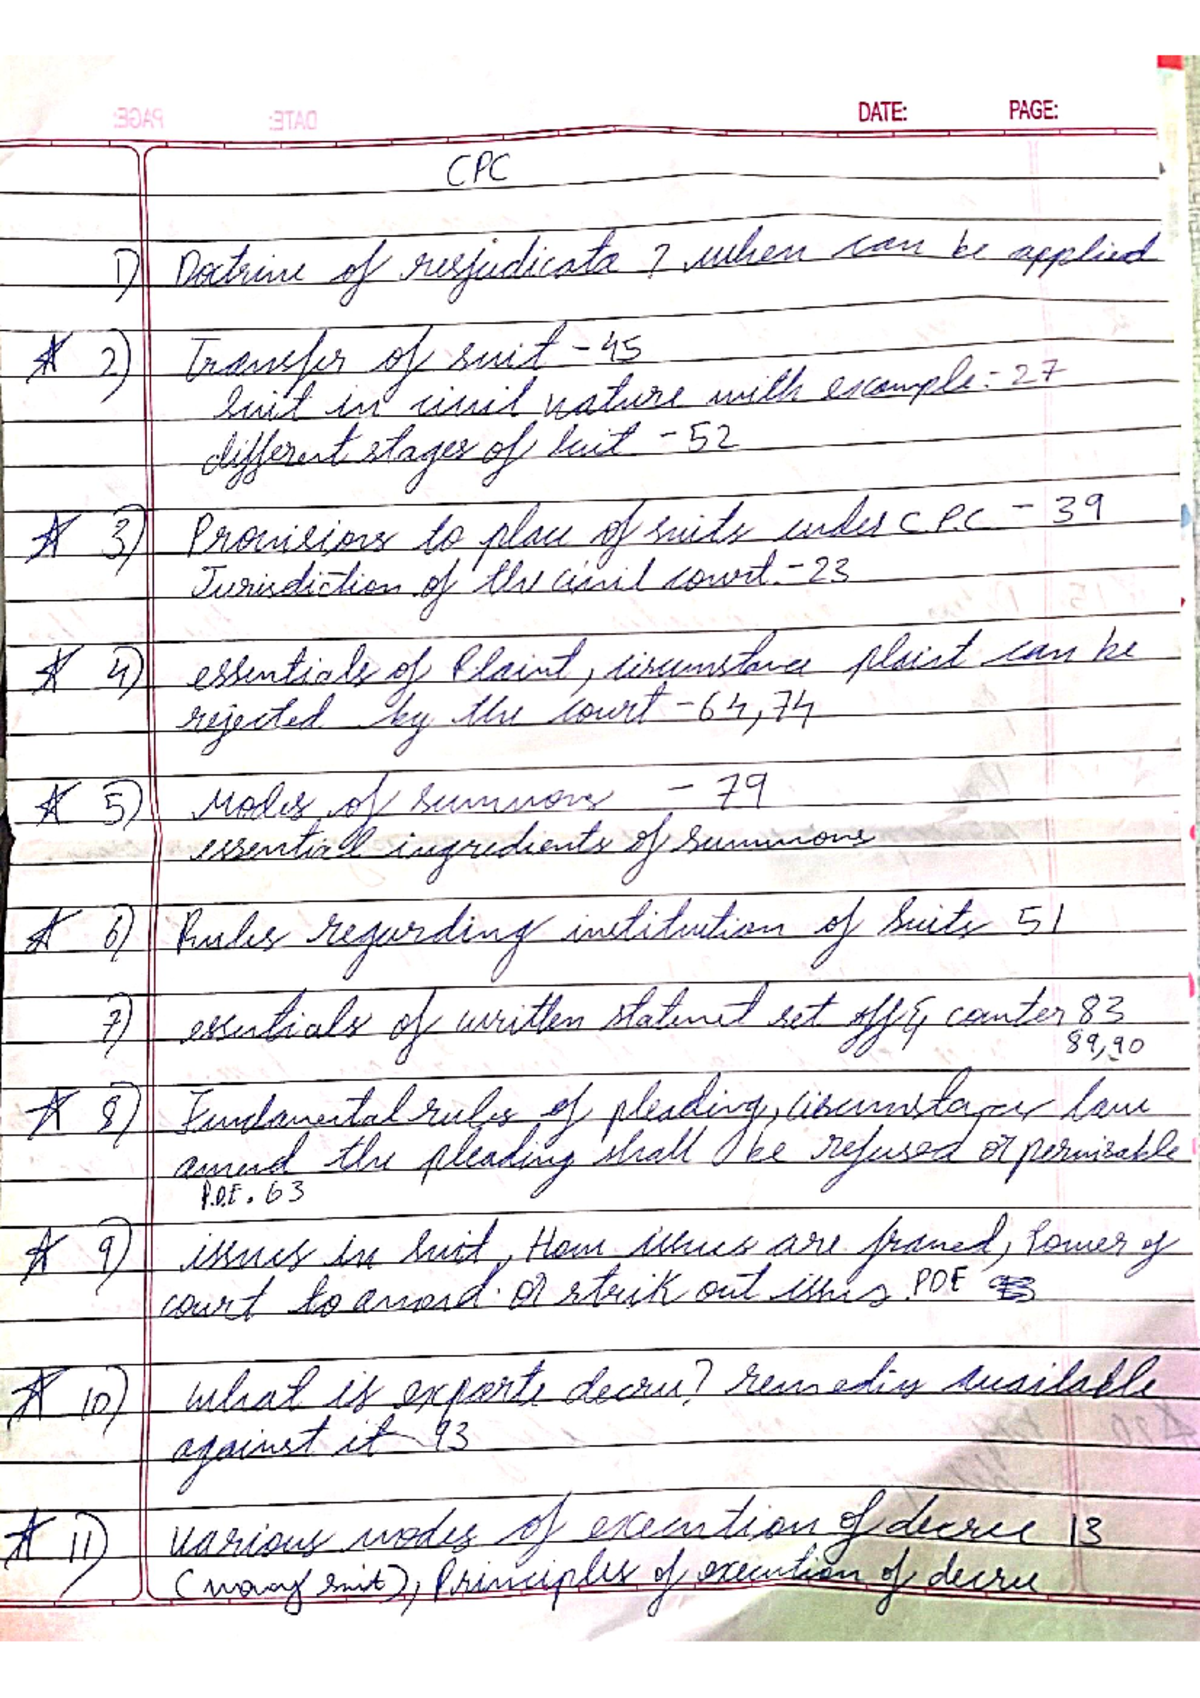 DATE: PAGE:
CPC
1) Doctrine of resjudicata ? when can be applied
★ 2) Transfer of suit - 45
Suit in civil nature with example:- 27
different stages of suit - 52
★ 3) Provisions to place of suits under C.P.C - 39
Jurisdiction of the civil court - 23
★ 4) essentials of Plaint, circumstance plaint can be
rejected by the court - 64, 74
★ 5) Modes of summons - 79
essential ingredients of summons
★ 6) Rules regarding institution of suits 51
7) essentials of written statment set off & counter 83
89, 90
★ 8) Fundamental rules of pleading, circumstances law
amend the pleading shall be refused or permisable
P.D.F. 63
★ 9) issues in suit, How issues are framed, Power of
court to amend or strik out issues. PDF
★ 10) What is exparte decree? remedies available
against it 93
★ 11) Various modes of execution of decree 13
(money suit), Principles of execution of decree